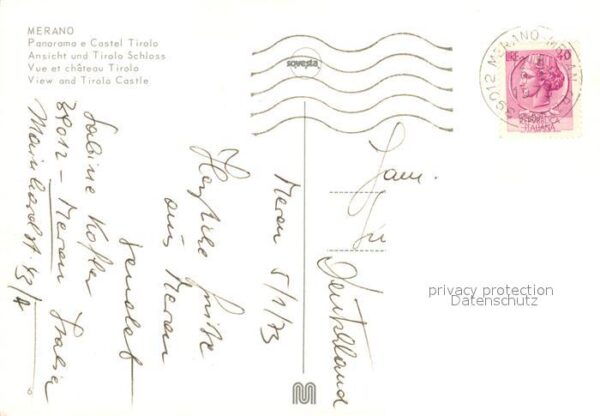 MERANO
Panorama e Castel Tirolo
Ansicht und Tirolo Schloss
Vue et château Tirolo
View and Tirolo Castle
sovesta
39012 MERANO-MERAN
LIRE 40
ITALIANA
Meran 5/1/73
Herzliche Grüße
aus Meran
sendet
Sabine Kofler
39012 - Meran Italia
43/A
Fam.
Deutschland
privacy protection
Datenschutz
M